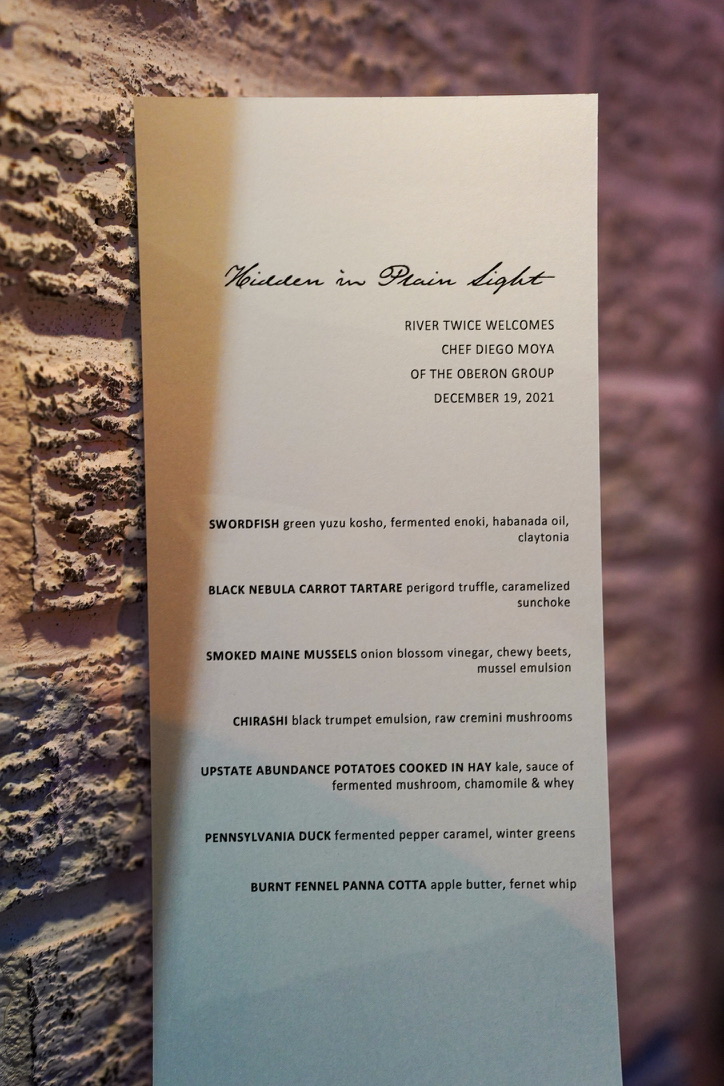 Hidden in Plain Sight
RIVER TWICE WELCOMES
CHEF DIEGO MOYA
OF THE OBERON GROUP
DECEMBER 19, 2021
SWORDFISH green yuzu kosho, fermented enoki, habanada oil,
claytonia
BLACK NEBULA CARROT TARTARE perigord truffle, caramelized
sunchoke
SMOKED MAINE MUSSELS onion blossom vinegar, chewy beets,
mussel emulsion
CHIRASHI black trumpet emulsion, raw cremini mushrooms
UPSTATE ABUNDANCE POTATOES COOKED IN HAY kale, sauce of
fermented mushroom, chamomile & whey
PENNSYLVANIA DUCK fermented pepper caramel, winter greens
BURNT FENNEL PANNA COTTA apple butter, fernet whip